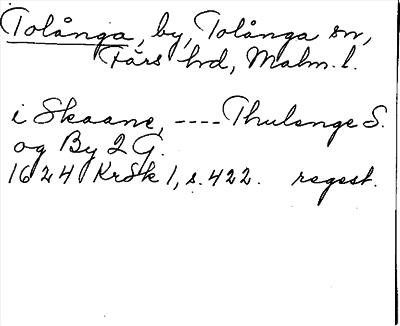 Tolånga, by, Tolånga sn,
Färs hd, Malm. l.
i Skaane, ---- Thulenge S.
og By 2 G.
1624 KrSk 1, s. 422. regest.